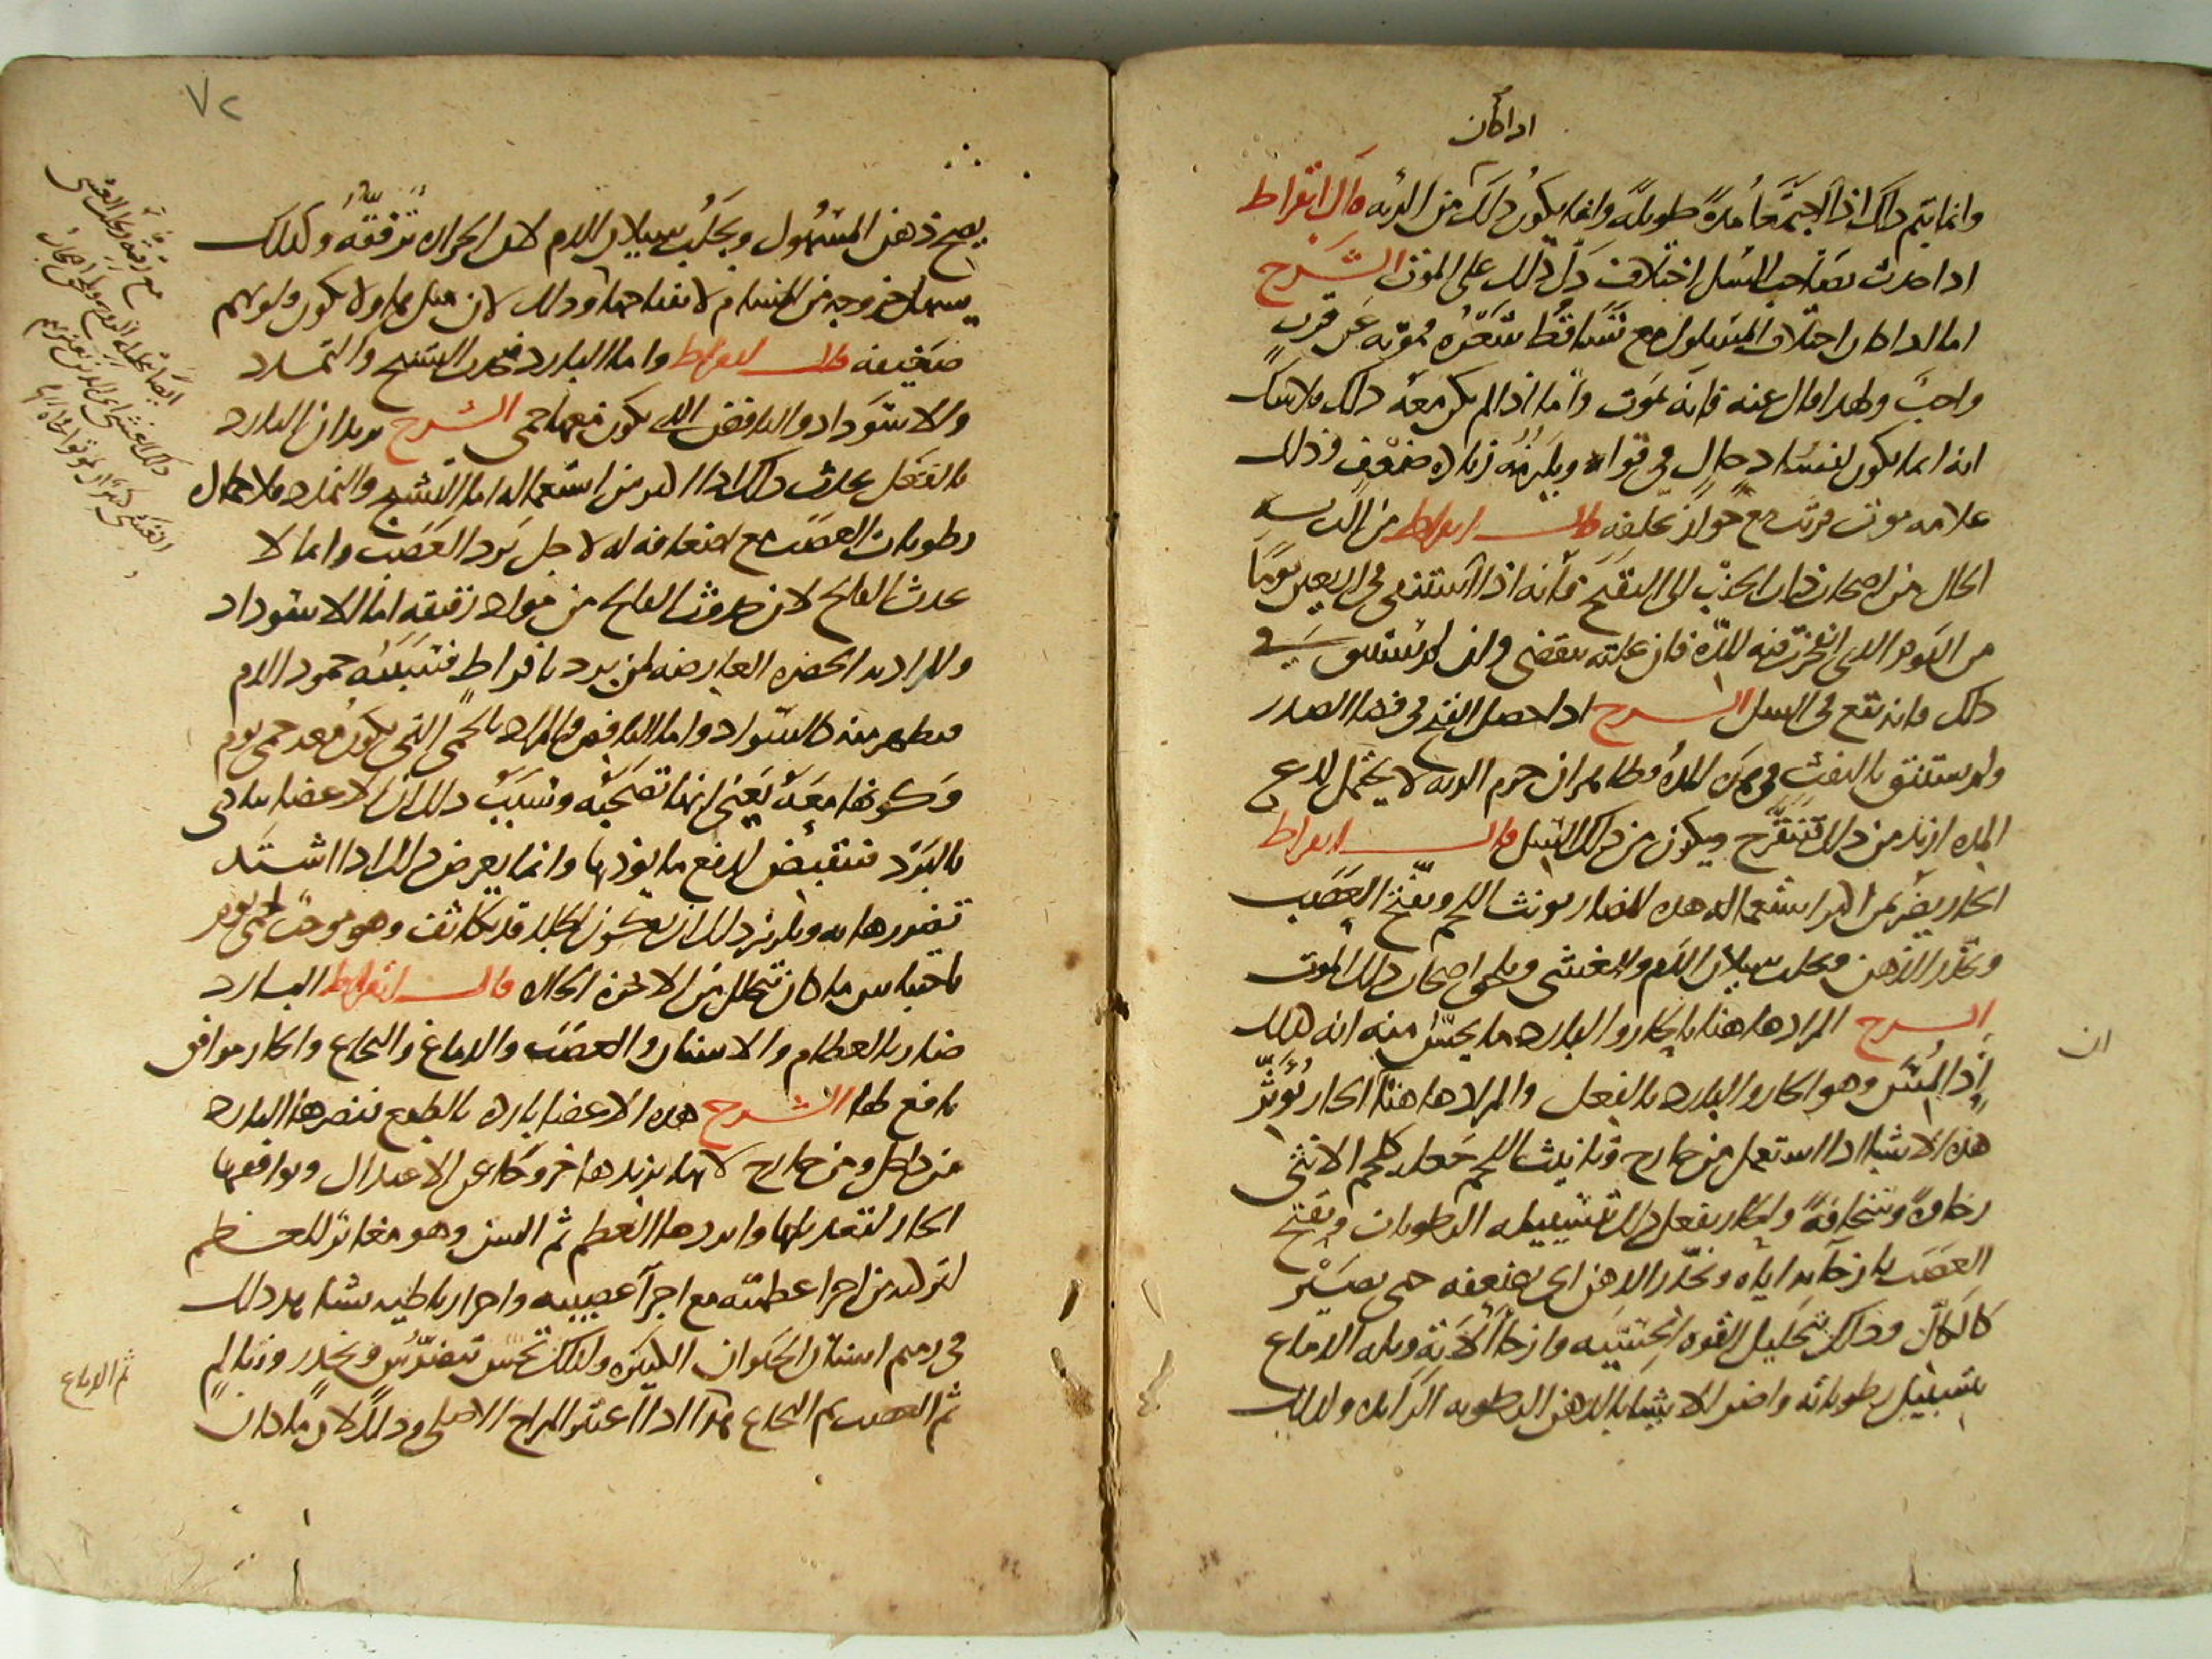 اذا كان
وانما يتم ذلك اذا اجتمعا مدة طويلة وانما يكون ذلك من الرئه قال ابقراط
اذا حدث بصاحب السل اختلاف دل ذلك على الموت الشرح
اما اذا كان اختلاف المسلول مع تساقط شعره فموته عن قرب
واجب ولهذا قال عنه فانه يموت واما اذا لم يكن معه ذلك فلا شك
انه انما يكون لفساد حال في قواه ويلزمه زياده ضعف وذلك
علامه موت قريب مع جواز تخلفه قال ابقراط من الت به
الحال من اصحاب ذات الجنب الى التقيح فانه اذا استنقى في اربعين يوما
من اليوم الذي انفجرت فيه المدة فان علته تنقضي وان لم يستنق في
ذلك فانه يقع في السل الشرح اذا حصل القيح في فضا الصدر
ولم يستنق بالنفث في هذه المده فظاهر ان جرم الرئه لا يحتمل لذع
المده ازيد من ذلك فتتقرح ويكون من ذلك السل قال ابقراط
الحار يضر لمن اكثر استعماله هذه المضار يؤنث اللحم ويفتح العصب
ويخدر الذهن ويجلب سيلان الدم والغشي ويلحق اصحاب ذلك الموت
الشرح المراد هاهنا بالحار والبارد ما يحس منه انه كذلك
ان
اذا لمس وهو الحار والبارد بالفعل والمراد هاهنا ان الحار يؤثر
هذه الاشيا اذا استعمل من خارج وتانيث اللحم جعله كلحم الانثى
رخاوة وسخافة والحار يفعل ذلك لتسييله الرطوبات ويفتح
العصب بارخائه اياه ويخدر الذهن اي يضعفه حتى يصير
كالكال وذلك لتحليل القوه الحسيه وارخا الاته وبله الدماغ
بتسييل رطوباته واضر الاشيا بالذهن الرطوبه الزائده ولذلك
٧٢
يصح ذهن المسهول ويجلب سيلان الدم لان الحراره ترققه وكذلك
يسهل خروجه من المسام لانفتاحها وذلك لان قبل بها ولا يكون قولهم
ضعيفه قال ابقراط واما البارد فيحدث التشنج والتمدد
والاسوداد والنافض التي يكون معها حمى الشرح يريد ان البارد
بالفعل يحدث ذلك اذا اكثر من استعماله اما التشنج والتمدد فلاحاله
رطوبات العصب مع اضعافه له لاجل برد العصب وانما لا
يحدث الفالج لان حدوث الفالج من مواد رقيقه اما الاسوداد
والمراد به الخضره العارضه لمن يبرد بافراط فتسببه جمود الدم
فيظهر منه كالسواد واما النافض فالمراد بالحمى التي يكون معه حمى يوم
وكونها معه يعني انها تصحبه وتسبب ذلك ان الاعضا تتاذى
بالبرد فتنقبض لدفع ما يوذيها وانما يعرض ذلك اذا اشتد
تضررها به ويلزم ذلك ان يكون الجلد قد تكاثف وهو موجب لحمى يوم
باحتباس ما كان يتحلل من الابخرة الحاره قال ابقراط البارد
ضار بالعظام والاسنان والعصب والدماغ والنخاع والحار موافق
نافع لها الشرح هذه الاعضا بارده بالطبع فيضرها البارد
من داخل ومن خارج لانه يزيدها خروجا عن الاعتدال ويوافقها
الحار لتعديلها وابردها العظم ثم السن وهو مغاير للعظم
لتركبه من اجزا عظميه مع اجزا عصبيه واجزا رباطيه يشاهد ذلك
في رميم اسنان الحيوان الكبيره ولذلك تحس بتضرس وبخدر وتالم
ثم العصب ثم النخاع هذا اذا اعتبر المزاج الاصلي وذلك لان ما كان
ثم الدماغ